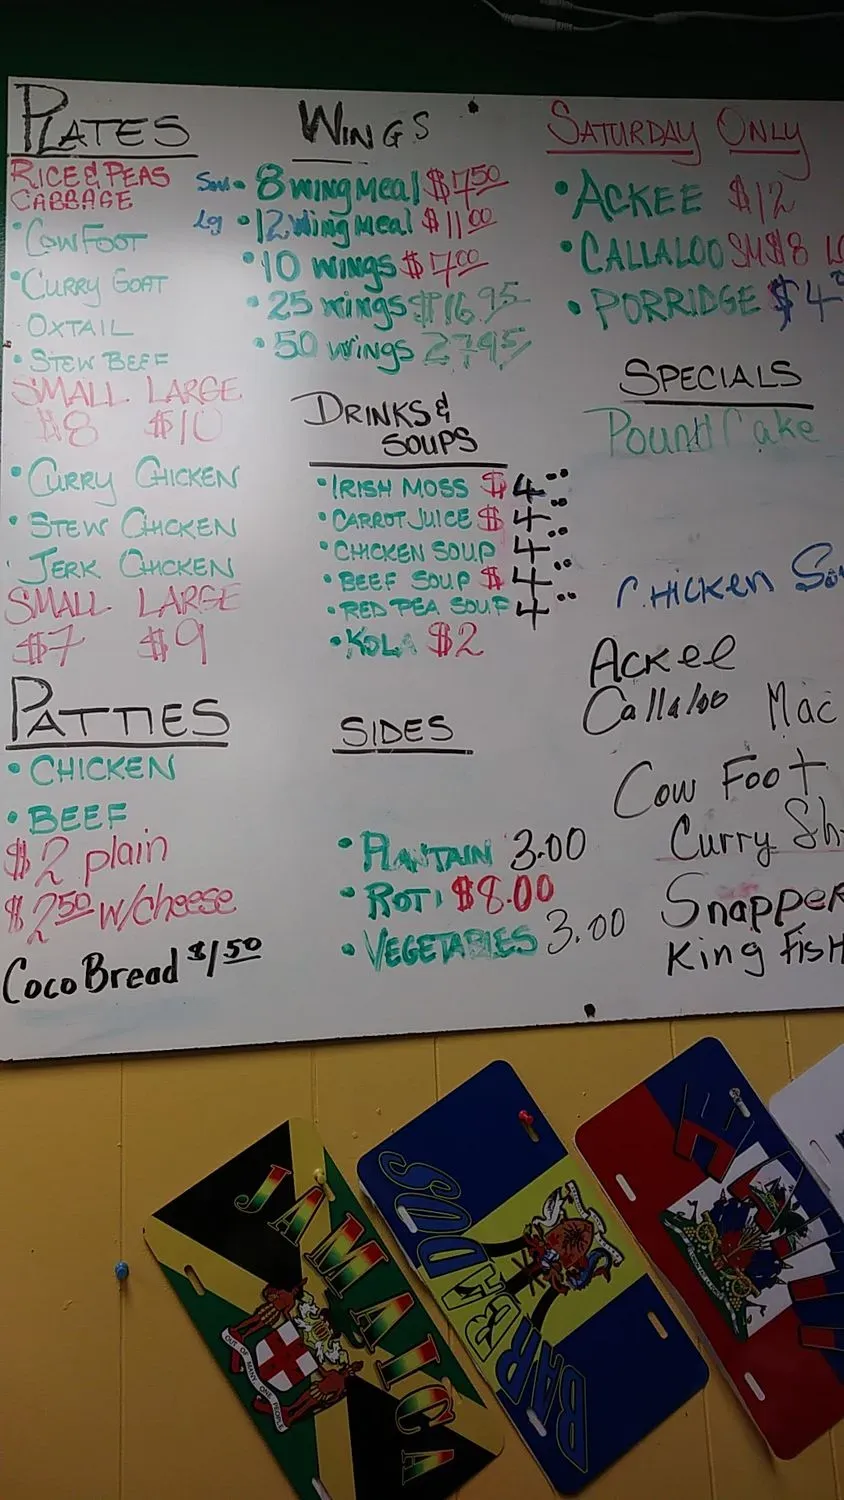 PLATES
RICE & PEAS
CABBAGE
• COW FOOT
• CURRY GOAT
OXTAIL
• STEW BEEF
SMALL LARGE
$8 $10
• CURRY CHICKEN
• STEW CHICKEN
• JERK CHICKEN
SMALL LARGE
$7 $9
PATTIES
• CHICKEN
• BEEF
$2 plain
$2.50 w/cheese
Coco Bread $1.50
WINGS
• 8 wing meal $7.50
Lg • 12 Wing meal $11.00
• 10 wings $7.00
• 25 wings $16.95
• 50 wings 27.95
DRINKS &
SOUPS
• IRISH MOSS $4.00
• CARROT JUICE $4.00
• CHICKEN SOUP 4.00
• BEEF SOUP $4.00
• RED PEA SOUP 4.00
• KOLA $2
SIDES
• PLANTAIN 3.00
• ROTI $8.00
• VEGETABLES 3.00
SATURDAY ONLY
• ACKEE $12
• CALLALOO SM $8
• PORRIDGE $4
SPECIALS
Pound Cake
CHICKEN
Ackee
Callaloo Mac
Cow Foot
Curry
Snapper
King FISH
JAMAICA
OUT OF MANY, ONE PEOPLE
BARBADOS